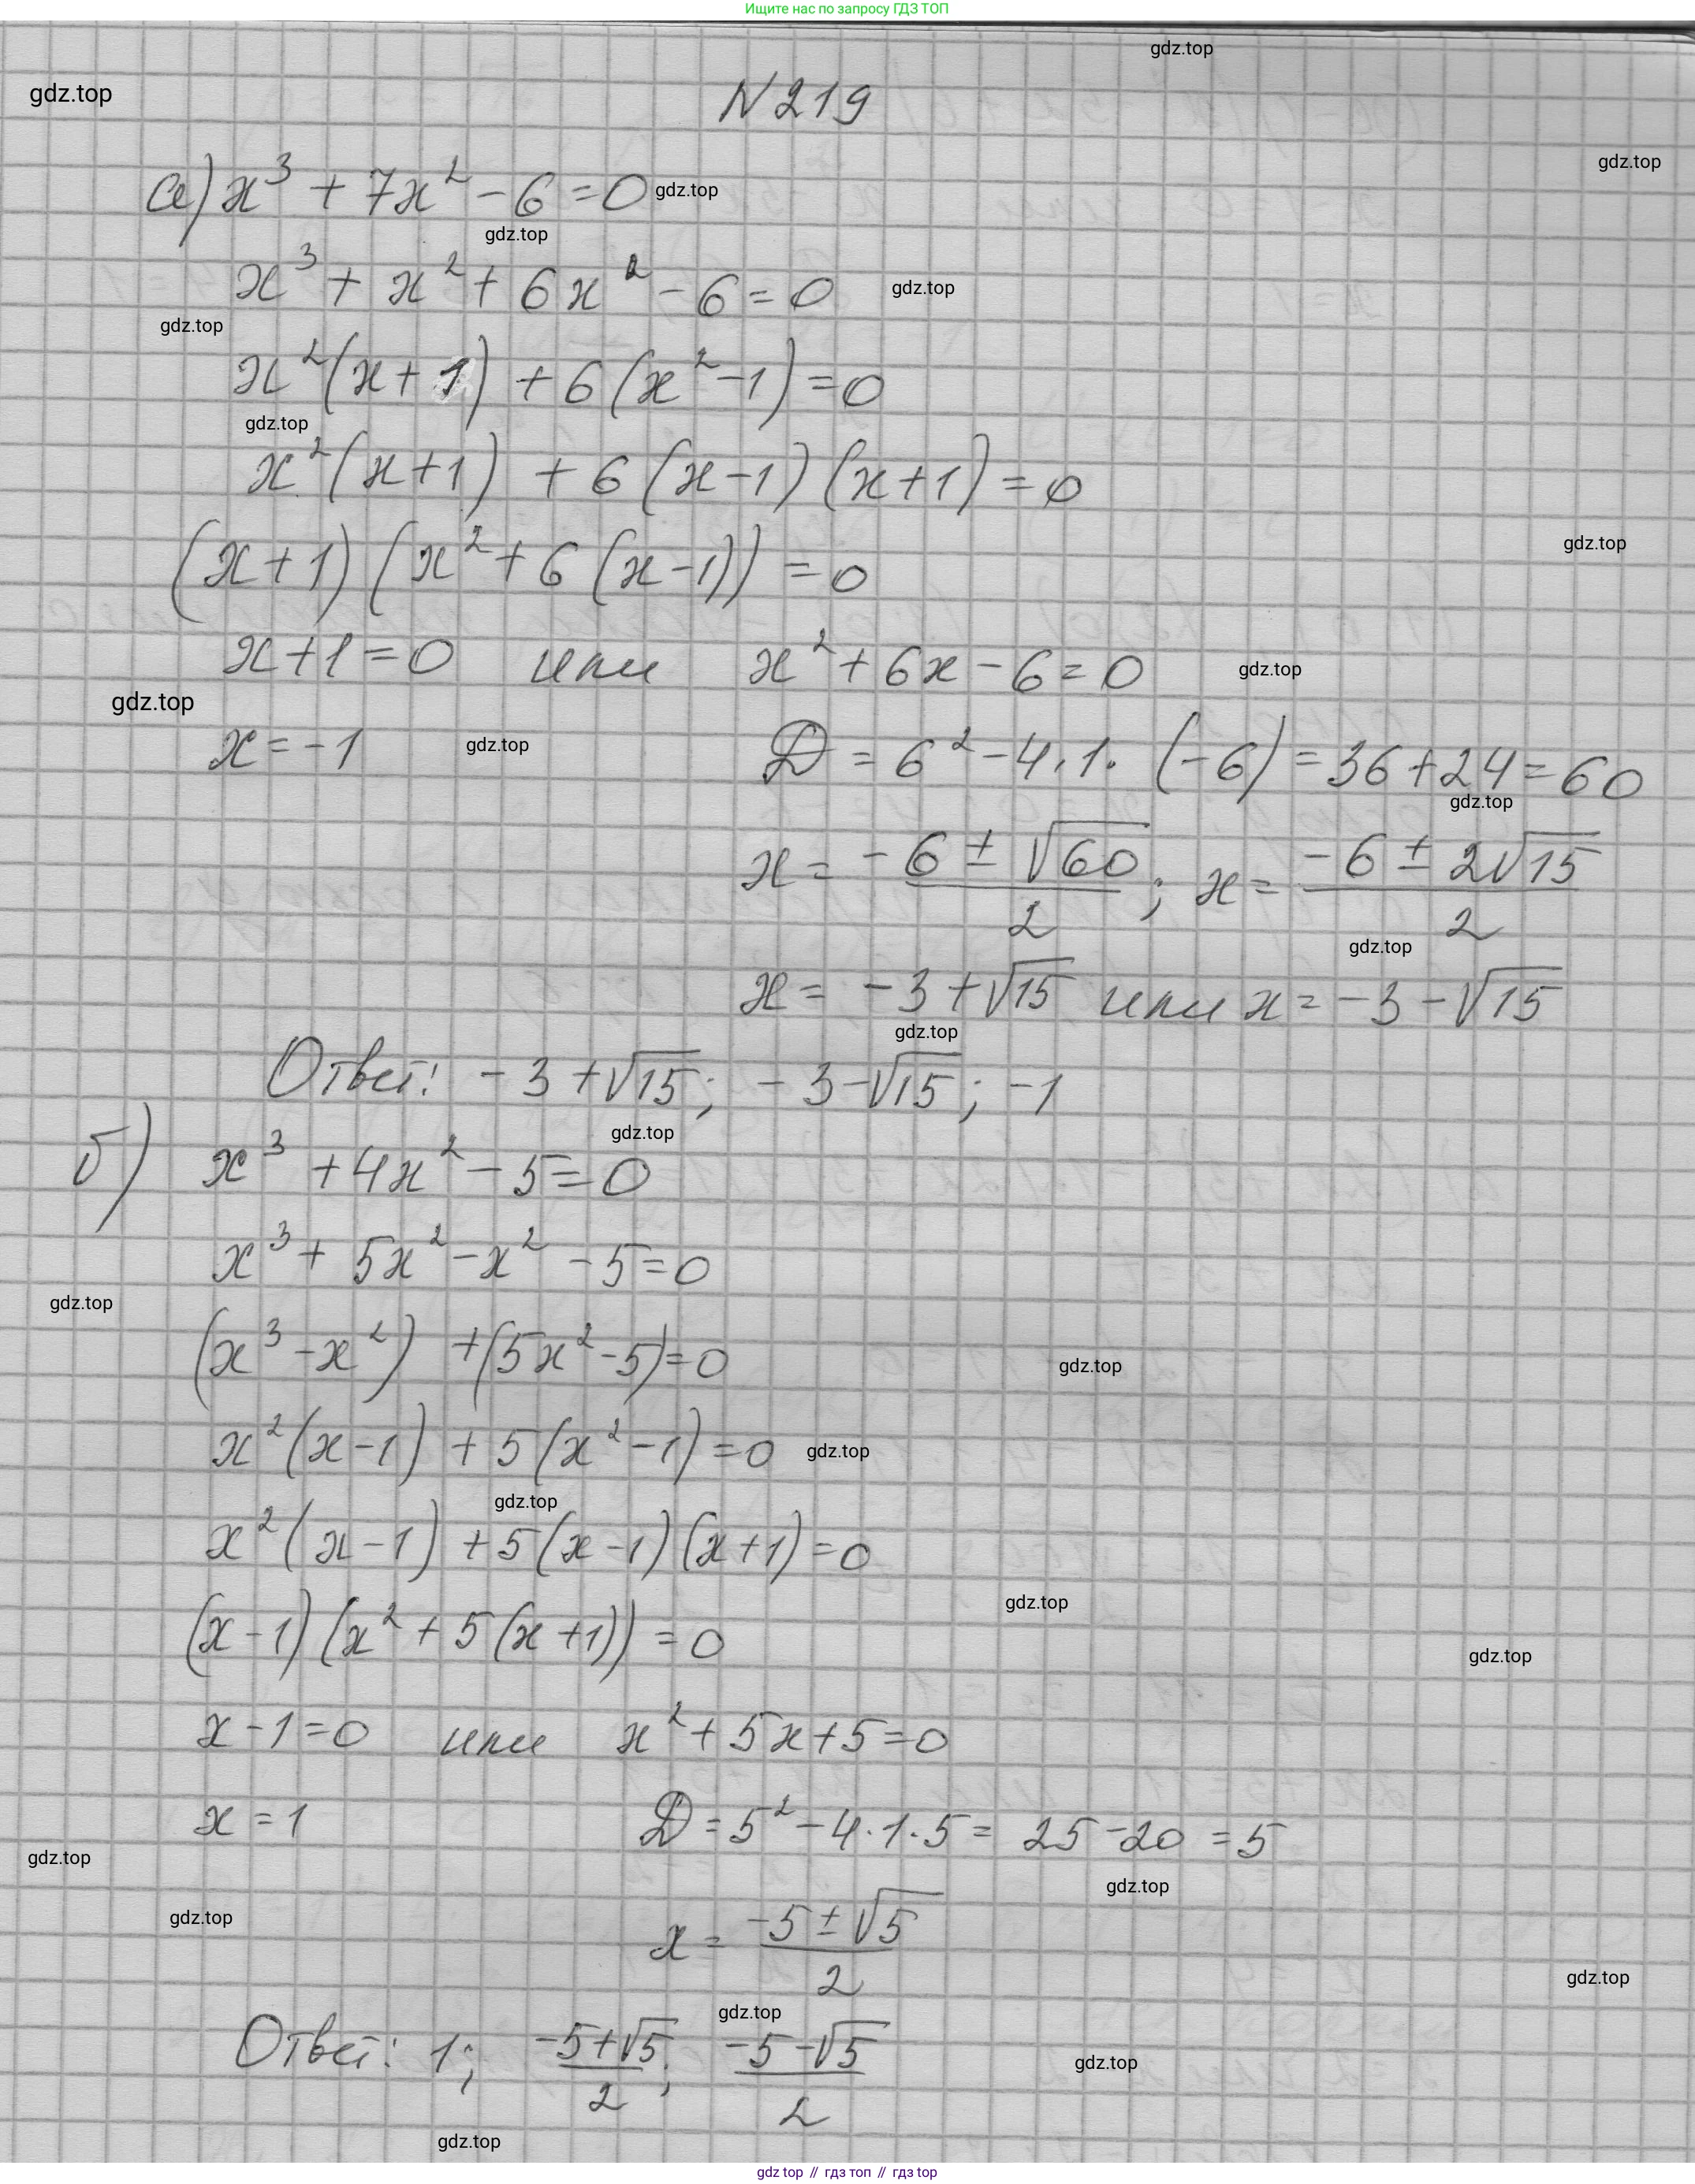 Ищите нас по запросу ГДЗ ТОП
gdz.top
gdz.top
N219
gdz.top
а) x³ + 7x² - 6 = 0 gdz.top
gdz.top
x³ + x² + 6x² - 6 = 0 gdz.top
gdz.top
x²(x + 1) + 6(x² - 1) = 0
gdz.top
x²(x + 1) + 6(x - 1)(x + 1) = 0
gdz.top
(x + 1)(x² + 6(x - 1)) = 0
x + 1 = 0 или x² + 6x - 6 = 0 gdz.top
gdz.top
x = -1 gdz.top D = 6² - 4·1·(-6) = 36 + 24 = 60
gdz.top
x = (-6 ± √60)/2; x = (-6 ± 2√15)/2
gdz.top
x = -3 + √15 или x = -3 - √15
gdz.top
Ответ: -3 + √15; -3 - √15; -1
gdz.top
б) x³ + 4x² - 5 = 0
x³ + 5x² - x² - 5 = 0
gdz.top
(x³ - x²) + (5x² - 5) = 0 gdz.top
x²(x - 1) + 5(x² - 1) = 0 gdz.top
gdz.top
x²(x - 1) + 5(x - 1)(x + 1) = 0
gdz.top
(x - 1)(x² + 5(x + 1)) = 0
gdz.top
x - 1 = 0 или x² + 5x + 5 = 0
x = 1 D = 5² - 4·1·5 = 25 - 20 = 5
gdz.top
gdz.top
gdz.top
x = (-5 ± √5)/2
gdz.top
gdz.top
Ответ: 1; (-5 + √5)/2; (-5 - √5)/2
gdz.top
gdz.top
gdz top // гдз топ // гдз top